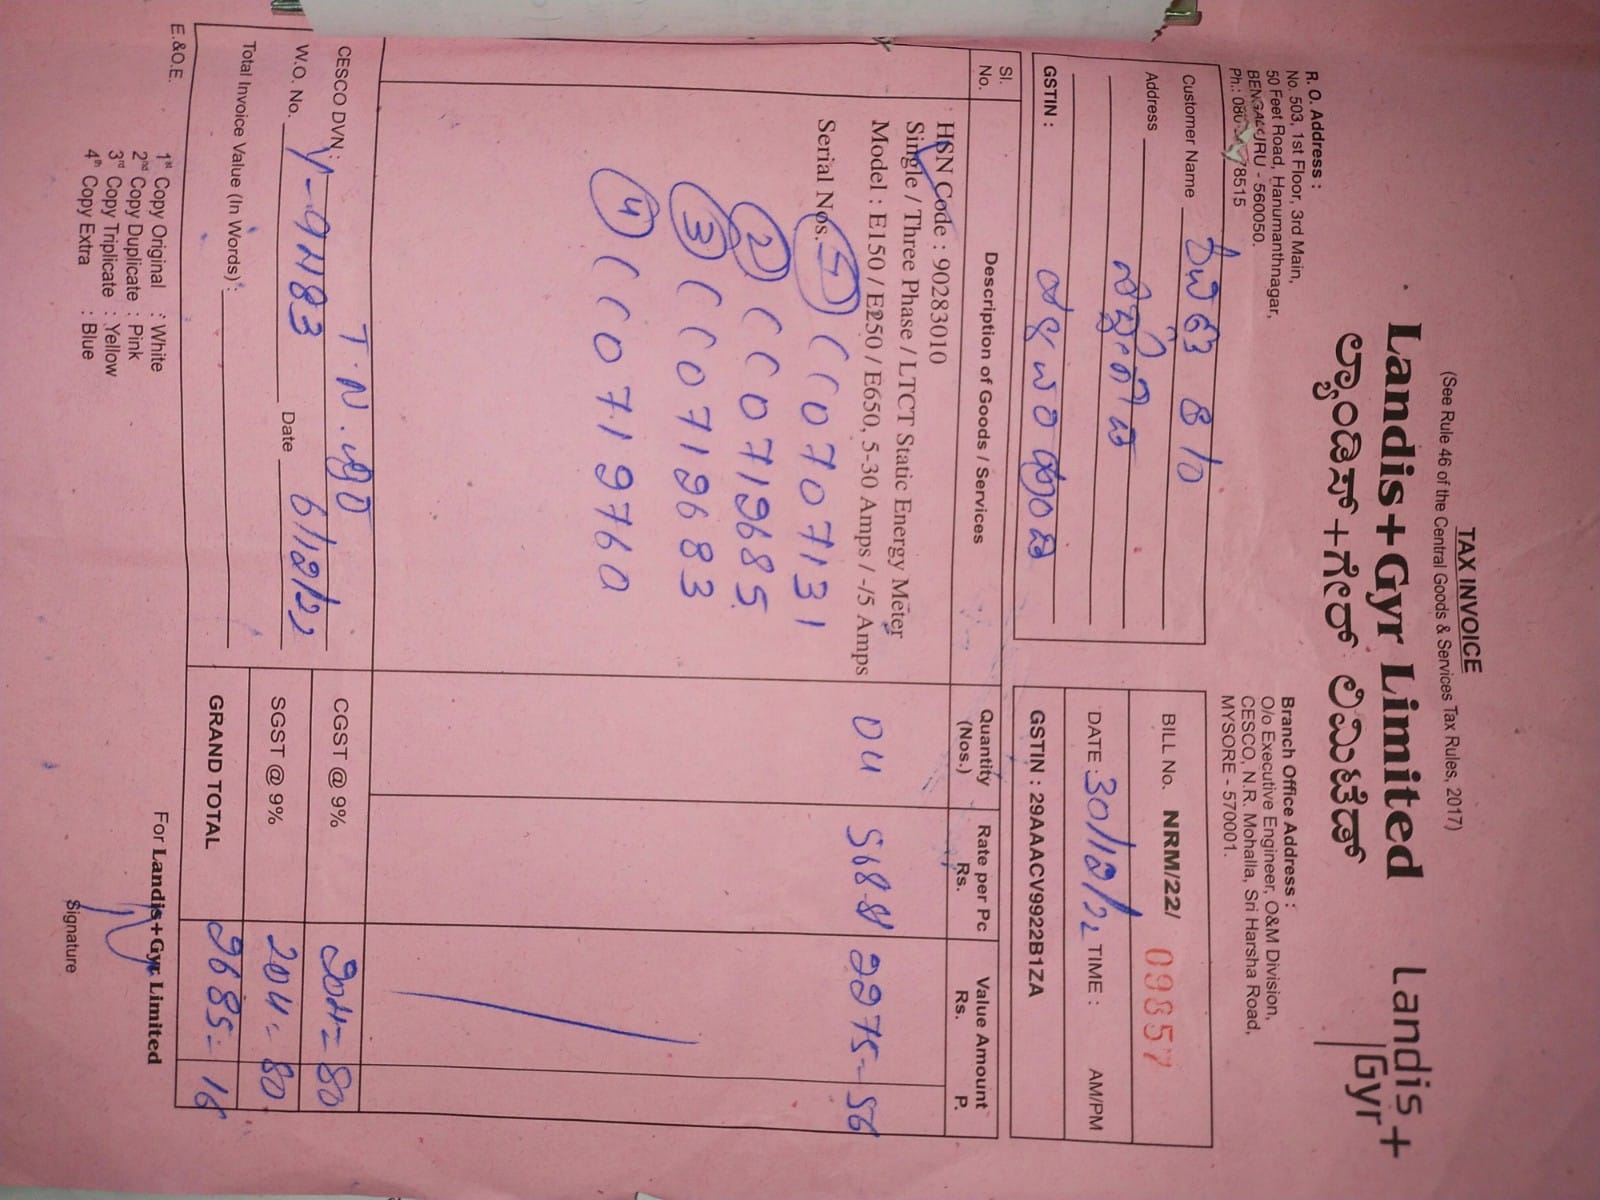 TAX INVOICE
(See Rule 46 of the Central Goods & Services Tax Rules, 2017)
Landis+Gyr Limited
ಲ್ಯಾಂಡಿಸ್+ಗೇರ್ ಲಿಮಿಟೆಡ್
Landis+
Gyr
R. O. Address :
No. 503, 1st Floor, 3rd Main,
50 Feet Road, Hanumanthnagar,
BENGALURU - 560050.
Ph.: 080 78515
Branch Office Address :
O/o Executive Engineer, O&M Division,
CESCO, N.R. Mohalla, Sri Harsha Road,
MYSORE - 570001.
Customer Name
Address
GSTIN :
BILL No. NRM/22/ 09857
DATE : 30/12/22 TIME : AM/PM
GSTIN : 29AAACV9922B1ZA
Sl. No. Description of Goods / Services Quantity (Nos.) Rate per Pc Rs. Value Amount Rs. P.
HSN Code : 90283010
Single / Three Phase / LTCT Static Energy Meter
Model : E150 / E250 / E650, 5-30 Amps / -/5 Amps 04 568-89 2275-56
Serial Nos. 1 ( ( 0707131
2 ( ( 0719685
3 ( ( 0719683
4 ( ( 0719760
CESCO DVN : T.N.ಪುರ
W.O. No. Date 6/12/22
Total Invoice Value (In Words) :
CGST @ 9% 204-80
SGST @ 9% 204-80
GRAND TOTAL 2685-16
E.&O.E.
1st Copy Original : White
2nd Copy Duplicate : Pink
3rd Copy Triplicate : Yellow
4th Copy Extra : Blue
For Landis+Gyr Limited
Signature